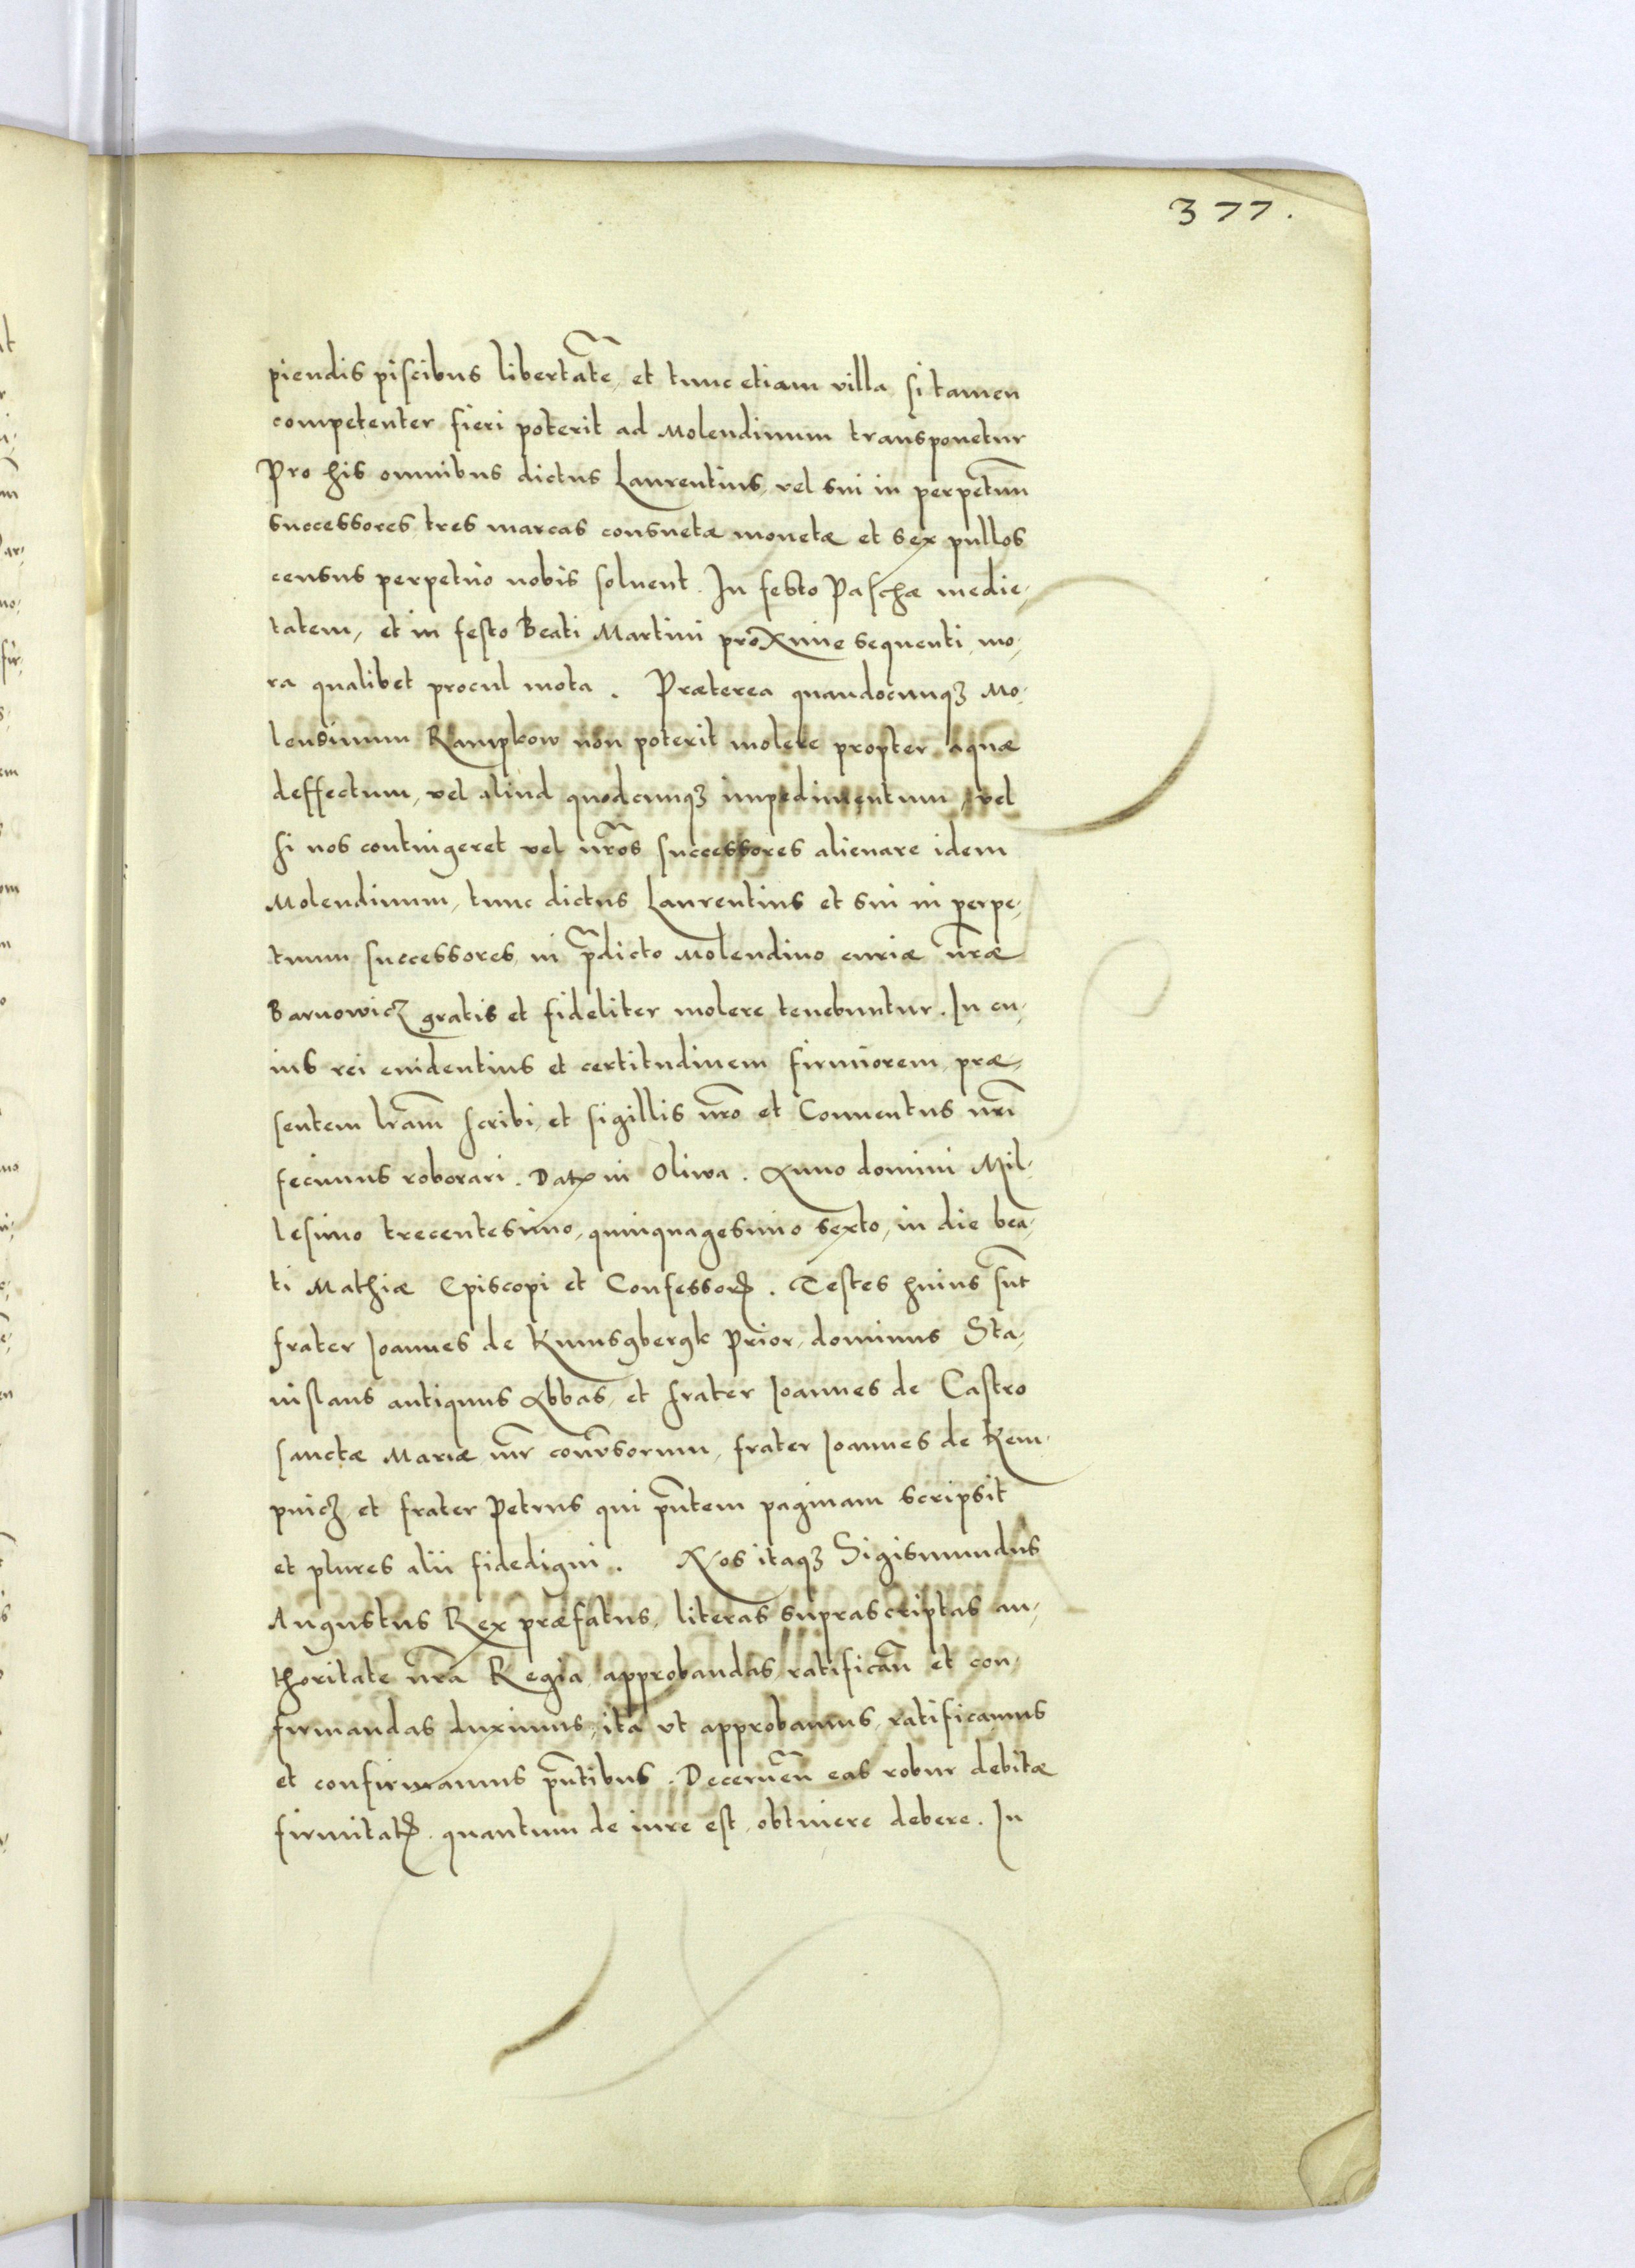 377.
piendis piscibus libertate, et tunc etiam villa si tamen
competenter fieri poterit ad Molendinum transponetur
Pro his omnibus dictus Laurentius, vel sui in perpetuũ
successores, tres marcas consuetæ monetæ et sex pullos
census perpetuo nobis soluent. In festo Paschæ medie,
tatem, et in festo Beati Martini proxime sequenti, mo,
ra qualibet procul mota. Præterea quandocunqꝫ Mo,
lendinum Rampkow non poterit molere propter aquæ
deffectum, vel aliud quodcunqꝫ impedimentum, vel
si nos contingeret vel nr̃os successores alienare idem
Molendinum, tunc dictus Laurentius et sui in perpe,
tuum successores, in p̃dicto Molendino curiæ nr̃æ
Barnowicz gratis et fideliter molere tenebuntur. In cu,
ius rei euidentius et certitudinem firmiorem, præ,
sentem lr̃am scribi, et sigillis nr̃o et Conuentus nr̃i
fecimus roborari. Datꝭ in Oliwa. Anno domini Mil,
lesimo trecentesimo, quinquagesimo sexto, in die bea,
ti Mathiæ Episcopi et Confessorꝭ. Testes huius sũt
frater Joannes de Kunsgbergk Prior, dominus Sta,
nislaus antiquus Abbas, et frater Joannes de Castro
sanctæ Mariæ mr̃ conũsorum, frater Joannes de Kem,
pnicz et frater Petrus qui p̃ntem paginam scripsit
et plures alii fidedigni. Nos itaqꝫ Sigismundus
Augustus Rex præfatus, literas suprascriptas au,
thoritate nr̃a Regia approbandas ratificañ et con,
firmandas duximus, ita vt approbamus, ratificamus
et confirmamus p̃ntibus. Decernẽn eas robur debitæ
firmitatꝭ quantum de iure est, obtinere debere. In